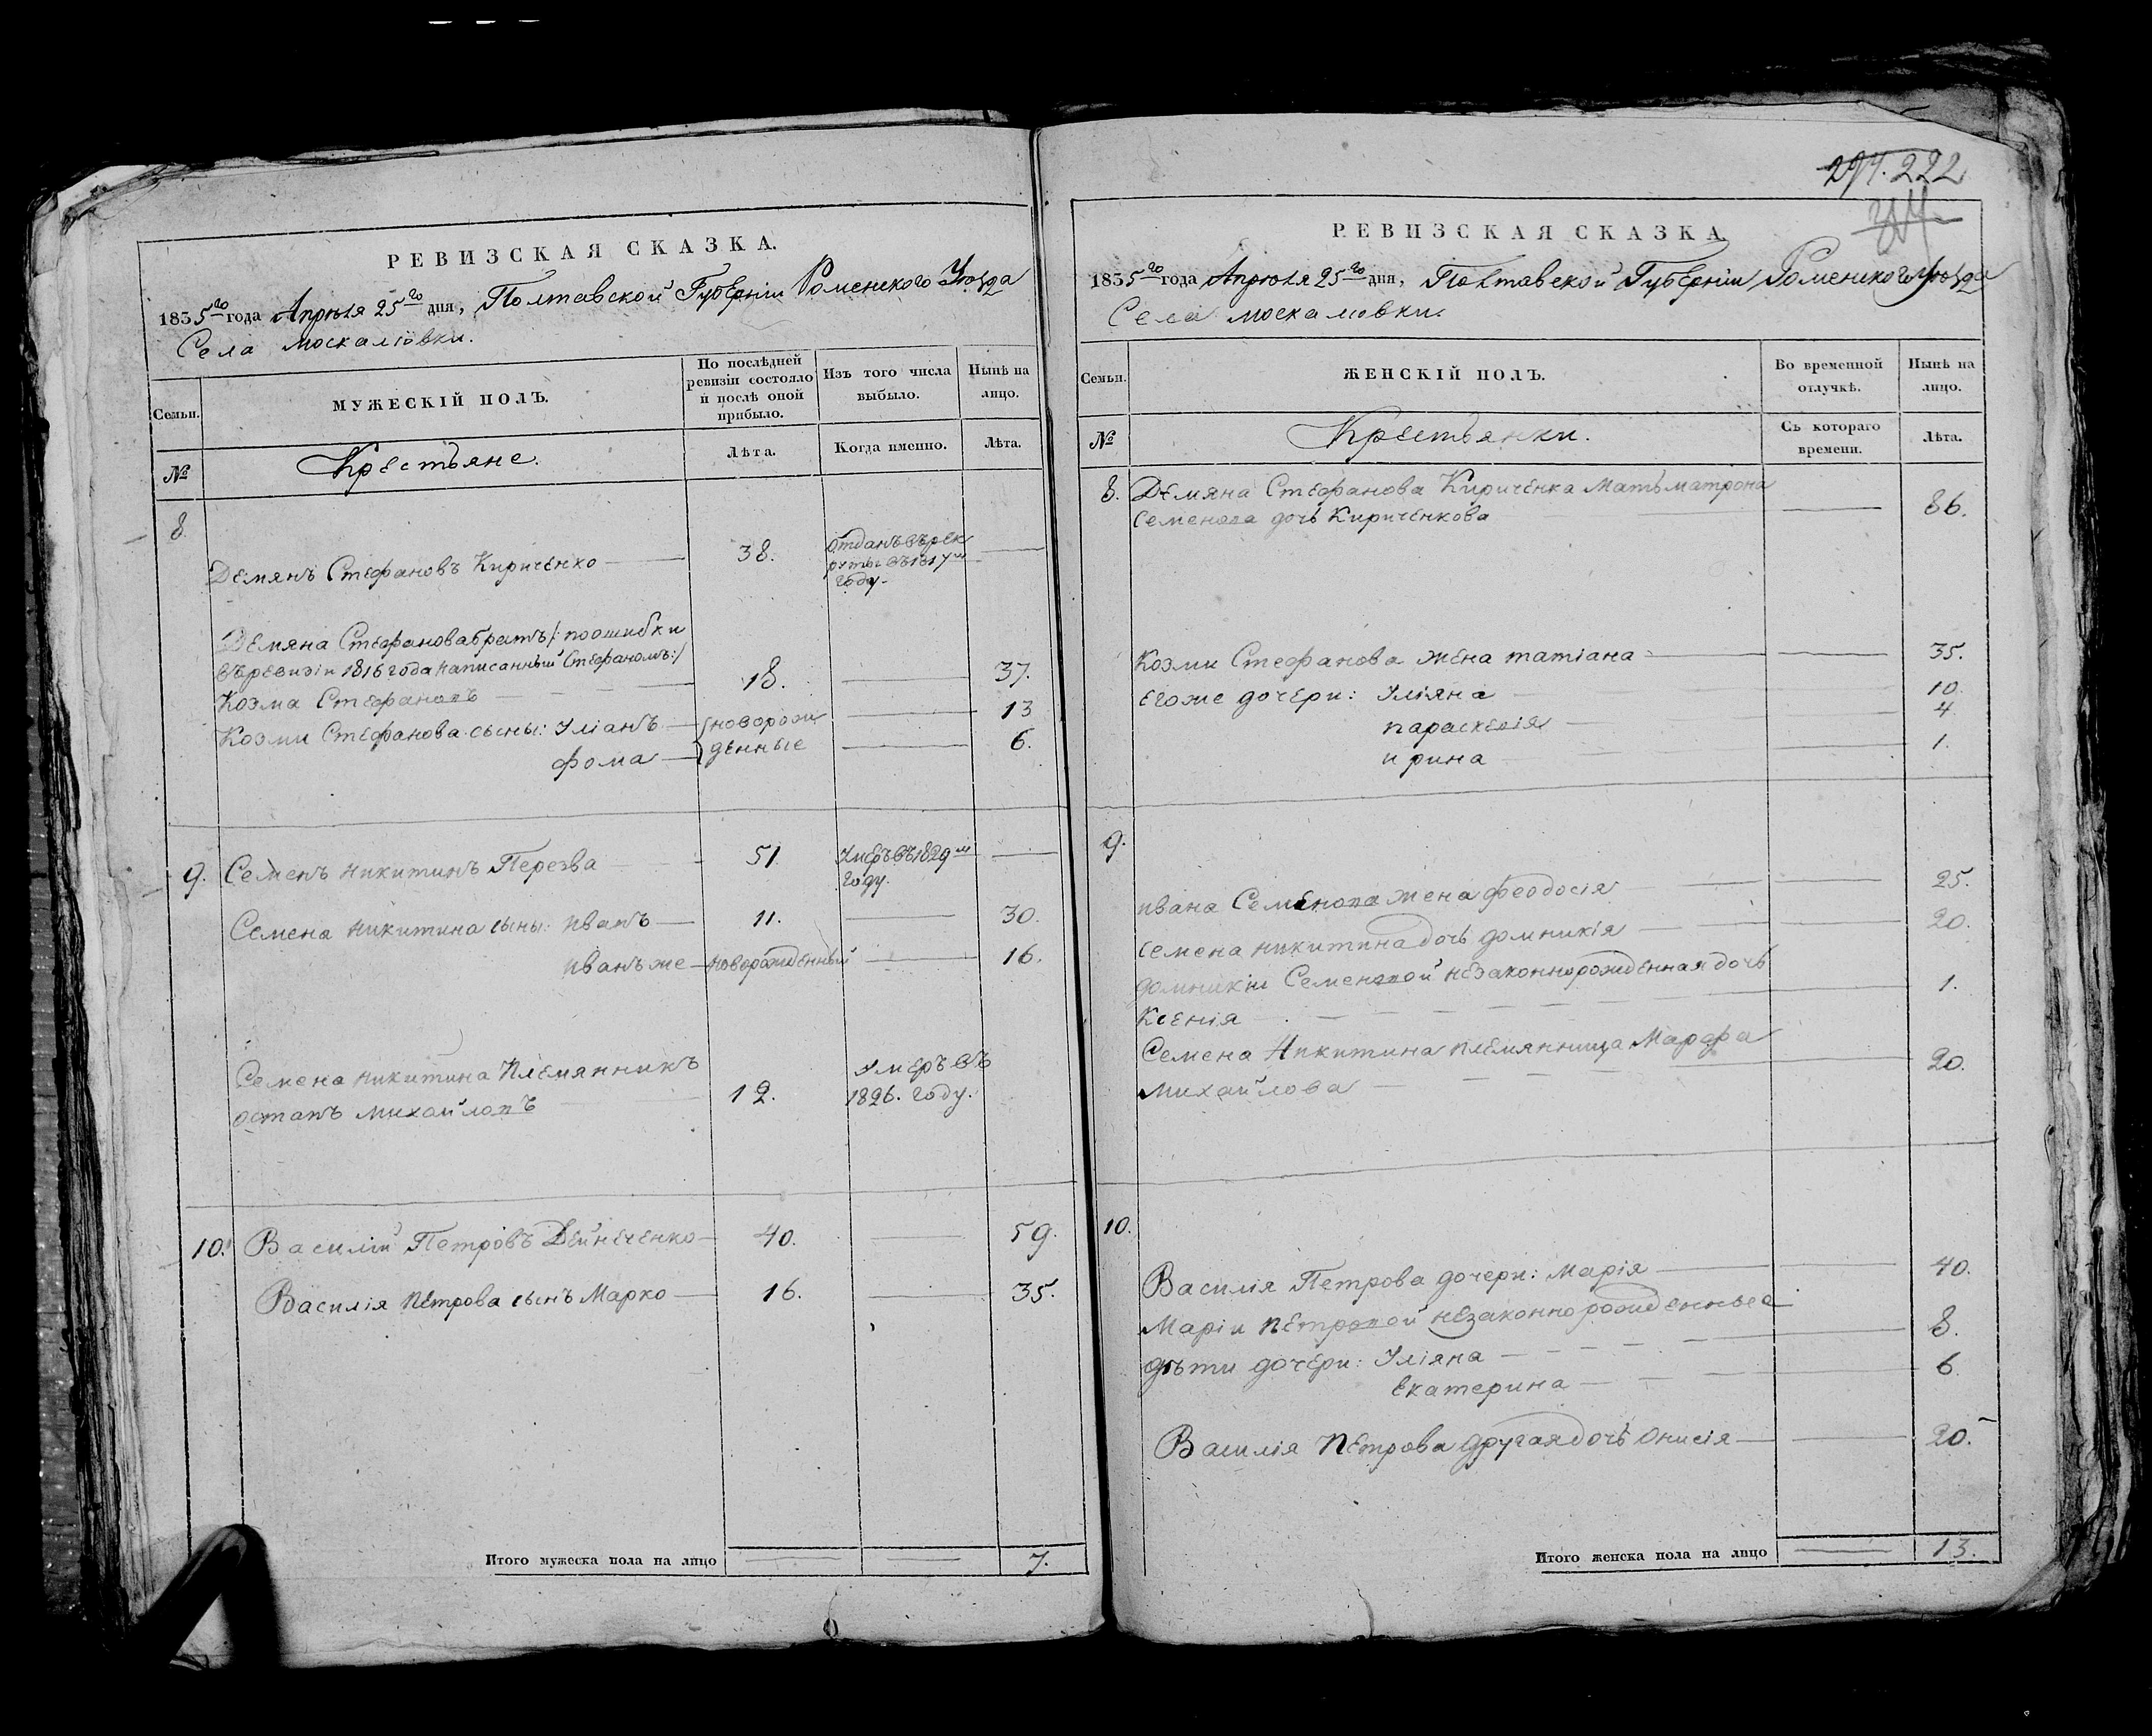 РЕВИЗСКАЯ СКАЗКА.
1835го года Апрѣля 25го дня, Полтавской Губерніи Роменского Уѣзда
Села Москалювки.
Семьи.
МУЖЕСКІЙ ПОЛЪ.
По послѣдней
ревизіи состояло
и послѣ оной
прибыло.
Изъ того числа
выбыло.
Нынѣ на
лицо.
№
Крестьяне.
Лѣта.
Когда именно.
Лѣта.
8.
Демянъ Стефановъ Кириченко
38.
отданъ въ рек
руты въ 1817м
году.
Демяна Стефанова братъ /: по ошибки
въ ревизіи 1816 года написанный Стефаномъ:/
Козма Стефановъ
18.
37.
Козми Стефанова сыны: Уліанъ
новорож
13
фома
денные
6.
9.
Семенъ Никитинъ Перезва
51
Умеръ въ 1829м
году.
Семена Никитина сыны: иванъ
11.
30.
иванъ же
новорожденный
16.
Семена Никитина Племянникъ
остапъ Михайловъ
12.
умеръ въ
1826. году.
10.
Василій Петровъ Дейнеченко
40.
59.
Василія Петрова сынъ Марко
16.
35.
Итого мужеска пола на лицо
7.
222
РЕВИЗСКАЯ СКАЗКА
1835го года Апрѣля 25го дня, Полтавской Губерніи Роменского Уѣзда
Села Москалювки.
Семьи.
ЖЕНСКІЙ ПОЛЪ.
Во временной
отлучкѣ.
Нынѣ на
лицо.
№
Крестьянки.
Съ котораго
времени.
Лѣта.
8.
Демяна Стефанова Кириченка мать матрона
Семенова дочь Кириченкова
86.
Козми Стефанова жена татіана
35.
его же дочери: Уліяна
10.
параскевія
4
ирина
1.
9.
ивана Семенова жена феодосія
25.
Семена Никитина дочь домникія
20.
домникіи Семеновой незаконнорожденная дочь
Ксенія
1.
Семена Никитина племянница Марфа
Михайлова
20.
10.
Василія Петрова дочери: Марія
40.
Маріи Петровой незаконнорожденные
дѣти дочери: Уліяна
8.
Екатерина
6
Василія Петрова другая дочь Онисія
20.
Итого женска пола на лицо
13.